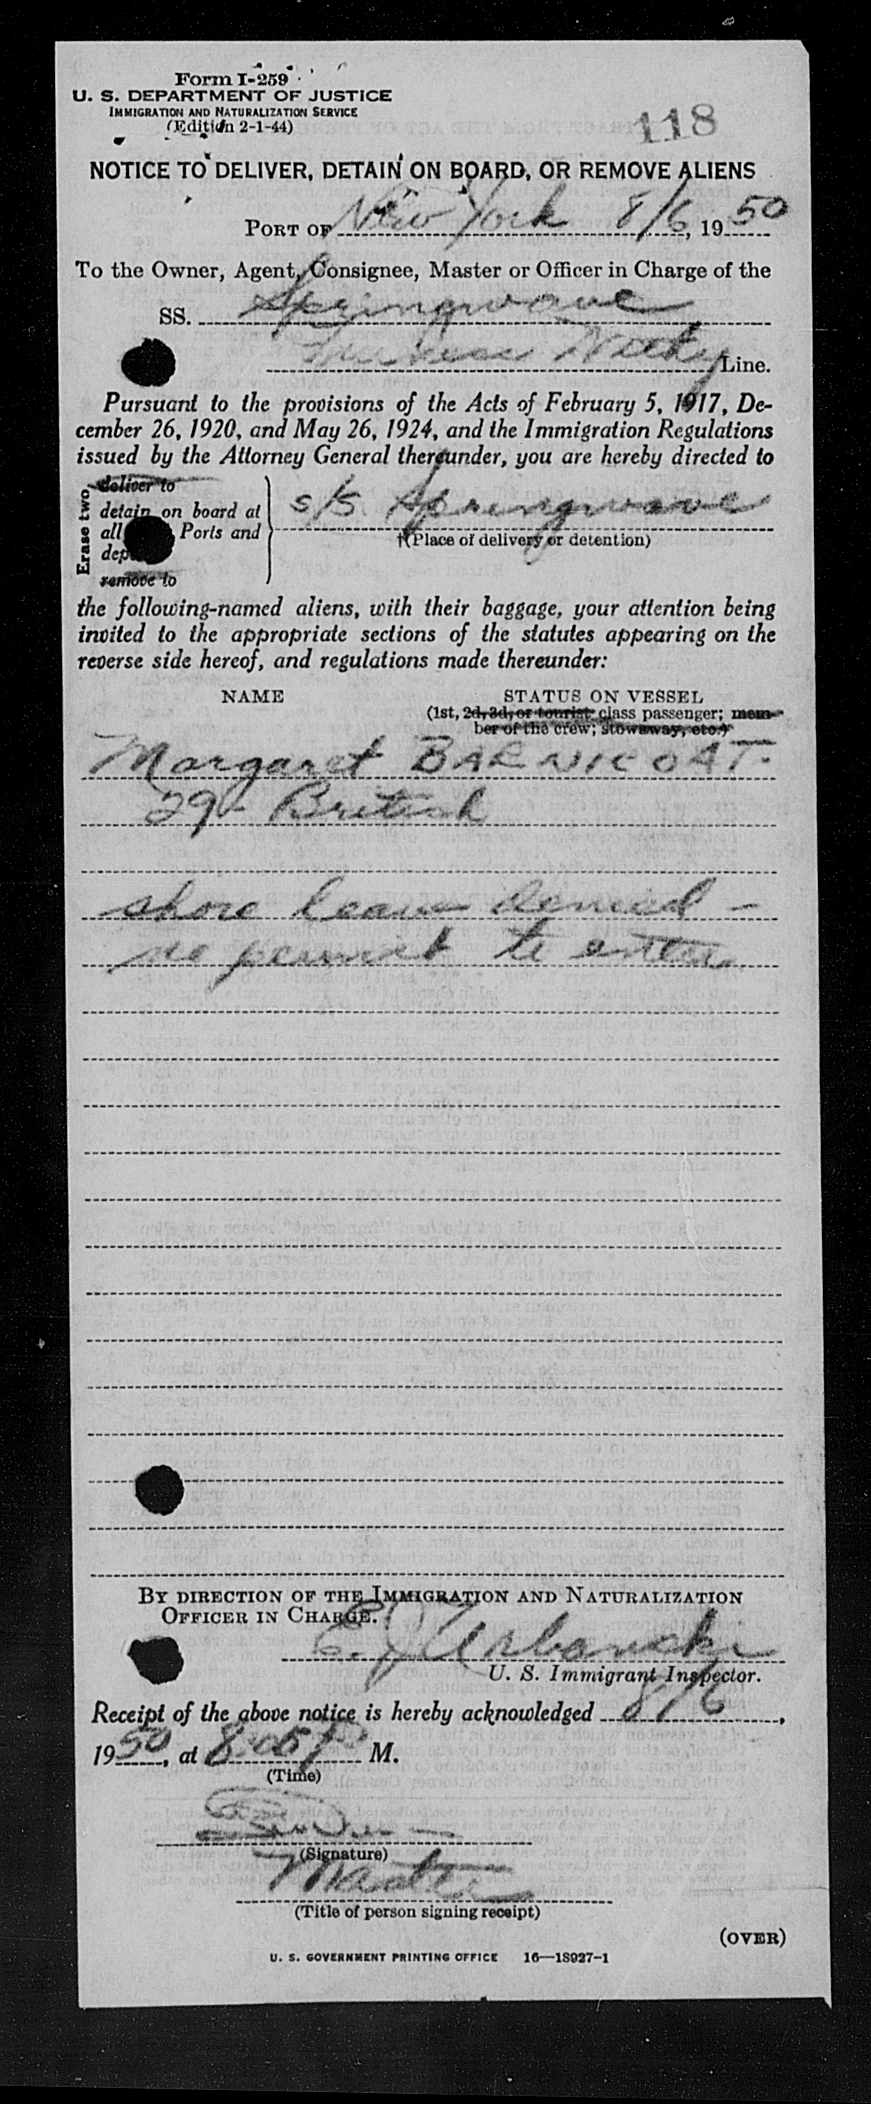 Form I-259
U. S. DEPARTMENT OF JUSTICE
IMMIGRATION AND NATURALIZATION SERVICE
(Edition 2-1-44)
118
NOTICE TO DELIVER, DETAIN ON BOARD, OR REMOVE ALIENS
PORT OF New York 8/6, 1950
To the Owner, Agent, Consignee, Master or Officer in Charge of the
SS. Springwave
Line.
Pursuant to the provisions of the Acts of February 5, 1917, De-
cember 26, 1920, and May 26, 1924, and the Immigration Regulations
issued by the Attorney General thereunder, you are hereby directed to
Erase two
deliver to
detain on board at
all Ports and
dep
remove to
s/s Springwave
†(Place of delivery or detention)
the following-named aliens, with their baggage, your attention being
invited to the appropriate sections of the statutes appearing on the
reverse side hereof, and regulations made thereunder:
NAME STATUS ON VESSEL
(1st, 2d, 3d, or tourist class passenger; mem-
ber of the crew; stowaway, etc.)
Margaret BARNICOAT.
29 - British
shore leave denied -
no permit to enter
BY DIRECTION OF THE IMMIGRATION AND NATURALIZATION
OFFICER IN CHARGE.
E. J Urbanski
U. S. Immigrant Inspector.
Receipt of the above notice is hereby acknowledged 8/6,
1950, at 8:05 P M.
(Time)
(Signature)
Master
(Title of person signing receipt)
(OVER)
U. S. GOVERNMENT PRINTING OFFICE 16—18927-1